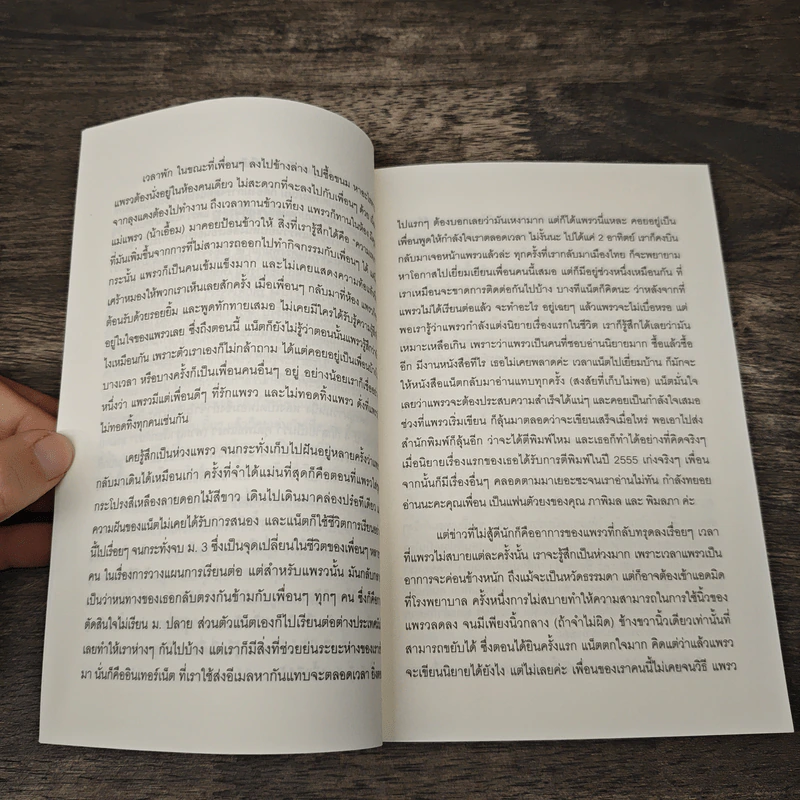 เวลาพัก ในขณะที่เพื่อนๆ ลงไปข้างล่าง ไปซื้อขนม
แพรวต้องนั่งอยู่ในห้องคนเดียว ไม่สะดวกที่จะลงไปกับเพื่อนๆ ด้วย
จากลุงแดงต้องไปทำงาน ถึงเวลาทานข้าวเที่ยง แพรวก็ทานในห้อง
แม่แพรว (น้าเอื้อม) มาคอยป้อนข้าวให้ สิ่งที่เรารู้สึกได้คือ
ที่มันเพิ่มขึ้นจากการที่ไม่สามารถออกไปทำกิจกรรมกับเพื่อนๆ ได้
กระนั้น แพรวก็เป็นคนเข้มแข็งมาก และไม่เคยแสดงความท้อแท้หรือ
เศร้าหมองให้พวกเราเห็นเลยสักครั้ง เมื่อเพื่อนๆ กลับมาที่ห้อง
ต้อนรับด้วยรอยยิ้ม และพูดทักทายเสมอ ไม่เคยมีใครได้รับรู้ความรู้สึก
อยู่ในใจของแพรวเลย ซึ่งถึงตอนนี้ แน็ตก็ยังไม่รู้ว่าตอนนั้นแพรวรู้สึก
ไงเหมือนกัน เพราะตัวเราเองก็ไม่กล้าถาม ได้แต่คอยอยู่เป็นเพื่อน
บางเวลา หรือบางครั้งก็เป็นเพื่อนคนอื่นๆ อยู่ อย่างน้อยเราก็
หนึ่งว่า แพรวมีแต่เพื่อนดีๆ ที่รักแพรว และไม่ทอดทิ้งแพรว ดั่งที่แพรว
ไม่ทอดทิ้งทุกคนเช่นกัน
เคยรู้สึกเป็นห่วงแพรว จนกระทั่งเก็บไปฝันอยู่หลายครั้งว่า
กลับมาเดินได้เหมือนเก่า ครั้งที่จำได้แม่นที่สุดก็คือตอนที่แพรว
กระโปรงสีเหลืองลายดอกไม้สีขาว เดินไปเดินมาคล่องปร๋อทีเดียว
ความฝันของแน็ตไม่เคยได้รับการสนอง และแน็ตก็ใช้ชีวิตการเรียน
นี้ไปเรื่อยๆ จนกระทั่งจบ ม. 3 ซึ่งเป็นจุดเปลี่ยนในชีวิตของเพื่อนๆ
คน ในเรื่องการวางแผนการเรียนต่อ แต่สำหรับแพรวนั้น มันกลับ
เป็นว่าหนทางของเธอกลับตรงกันข้ามกับเพื่อนๆ ทุกๆ คน ซึ่งก็คือ
ตัดสินใจไม่เรียน ม. ปลาย ส่วนตัวแน็ตเองก็ไปเรียนต่อต่างประเทศ
เลยทำให้เราห่างๆ กันไปบ้าง แต่เราก็มีสิ่งที่ช่วยย่นระยะห่างของเรา
มา นั่นก็คืออินเทอร์เน็ต ที่เราใช้ส่งอีเมลหากันแทบจะตลอดเวลา
ไปแรกๆ ต้องบอกเลยว่ามันเหงามาก แต่ก็ได้แพรวนี่แหละ คอยอยู่เป็น
เพื่อนพูดให้กำลังใจเราตลอดเวลา ไม่งั้นนะ ไปได้แค่ 2 อาทิตย์ เราก็คงบิน
กลับมาเจอหน้าแพรวแล้วล่ะ ทุกครั้งที่เรากลับมาเมืองไทย ก็จะพยายาม
หาโอกาสไปเยี่ยมเยียนเพื่อนคนนี้เสมอ แต่ก็มีอยู่ช่วงหนึ่งเหมือนกัน ที่
เราเหมือนจะขาดการติดต่อกันไปบ้าง บางทีแน็ตก็คิดนะ ว่าหลังจากที่
แพรวไม่ได้เรียนต่อแล้ว จะทำอะไร อยู่เฉยๆ แล้วแพรวจะไม่เบื่อหรอ แต่
พอเรารู้ว่าแพรวกำลังแต่งนิยายเรื่องแรกในชีวิต เราก็รู้สึกได้เลยว่ามัน
เหมาะเหลือเกิน เพราะว่าแพรวเป็นคนที่ชอบอ่านนิยายมาก ซื้อแล้วซื้อ
อีก มีงานหนังสือทีไร เธอไม่เคยพลาดค่ะ เวลาแน็ตไปเยี่ยมบ้าน ก็มักจะ
ให้หนังสือแน็ตกลับมาอ่านแทบทุกครั้ง (สงสัยที่เก็บไม่พอ) แน็ตมั่นใจ
เลยว่าแพรวจะต้องประสบความสำเร็จได้แน่ๆ และคอยเป็นกำลังใจเสมอ
ช่วงที่แพรวเริ่มเขียน ก็ลุ้นมาตลอดว่าจะเขียนเสร็จเมื่อไหร่ พอเอาไปส่ง
สำนักพิมพ์ก็ลุ้นอีก ว่าจะได้ตีพิมพ์ไหม และเธอก็ทำได้อย่างที่คิดจริงๆ
เมื่อนิยายเรื่องแรกของเธอได้รับการตีพิมพ์ในปี 2555 เก่งจริงๆ เพื่อน
จากนั้นก็มีเรื่องอื่นๆ คลอดตามมาเยอะซะจนเราอ่านไม่ทัน กำลังทยอย
อ่านนะคะคุณเพื่อน เป็นแฟนตัวยงของคุณ ภาพิมล และ พิมลภา ค่ะ
แต่ข่าวที่ไม่สู้ดีนักก็คืออาการของแพรวที่กลับทรุดลงเรื่อยๆ เวลา
ที่แพรวไม่สบายแต่ละครั้งนั้น เราจะรู้สึกเป็นห่วงมาก เพราะเวลาแพรวเป็น
อาการจะค่อนข้างหนัก ถึงแม้จะเป็นหวัดธรรมดา แต่ก็อาจต้องเข้าแอดมิด
ที่โรงพยาบาล ครั้งหนึ่งการไม่สบายทำให้ความสามารถในการใช้นิ้วของ
แพรวลดลง จนมีเพียงนิ้วกลาง (ถ้าจำไม่ผิด) ข้างขวานิ้วเดียวเท่านั้นที่
สามารถขยับได้ ซึ่งตอนได้ยินครั้งแรก แน็ตตกใจมาก คิดแต่ว่าแล้วแพรว
จะเขียนนิยายได้ยังไง แต่ไม่เลยค่ะ เพื่อนของเราคนนี้ไม่เคยจนวิธี แพรว